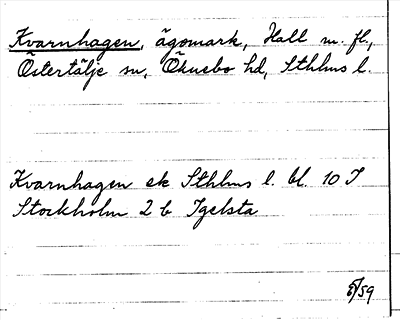 Kvarnhagen, ägomark, Hall m. fl.,
Östertälje sn, Öknebo hd, Sthlms l.
Kvarnhagen ek Sthlms l. bl. 10 I
Stockholm 2 b Igelsta
/59